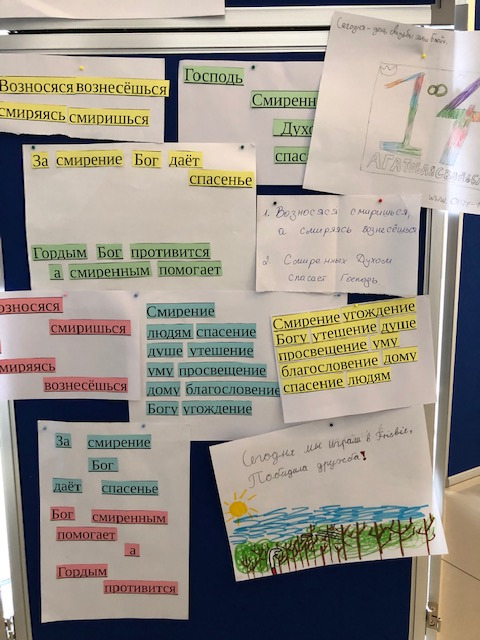 Возносяся вознесёшься
смиряясь смиришься
Господь
Смиренн
Духо
спас
Сегодня - день свадьбы
14
За смирение Бог даёт
спасенье
Гордым Бог противится
а смиренным помогает
1. Возносяся смиришься,
а смиряясь вознесёшься
2. Смиренных Духом
спасает Господь
озносяся
смиришься
миряясь
вознесёшься
Смирение
людям спасение
душе утешение
уму просвещение
дому благословение
Богу угождение
Смирение угождение
Богу утешение душе
просвещение уму
благословение дому
спасение людям
За смирение
Бог
даёт спасенье
Бог смиренным
помогает
а
Гордым
противится
Сегодня мы играли в
Победила дружба!